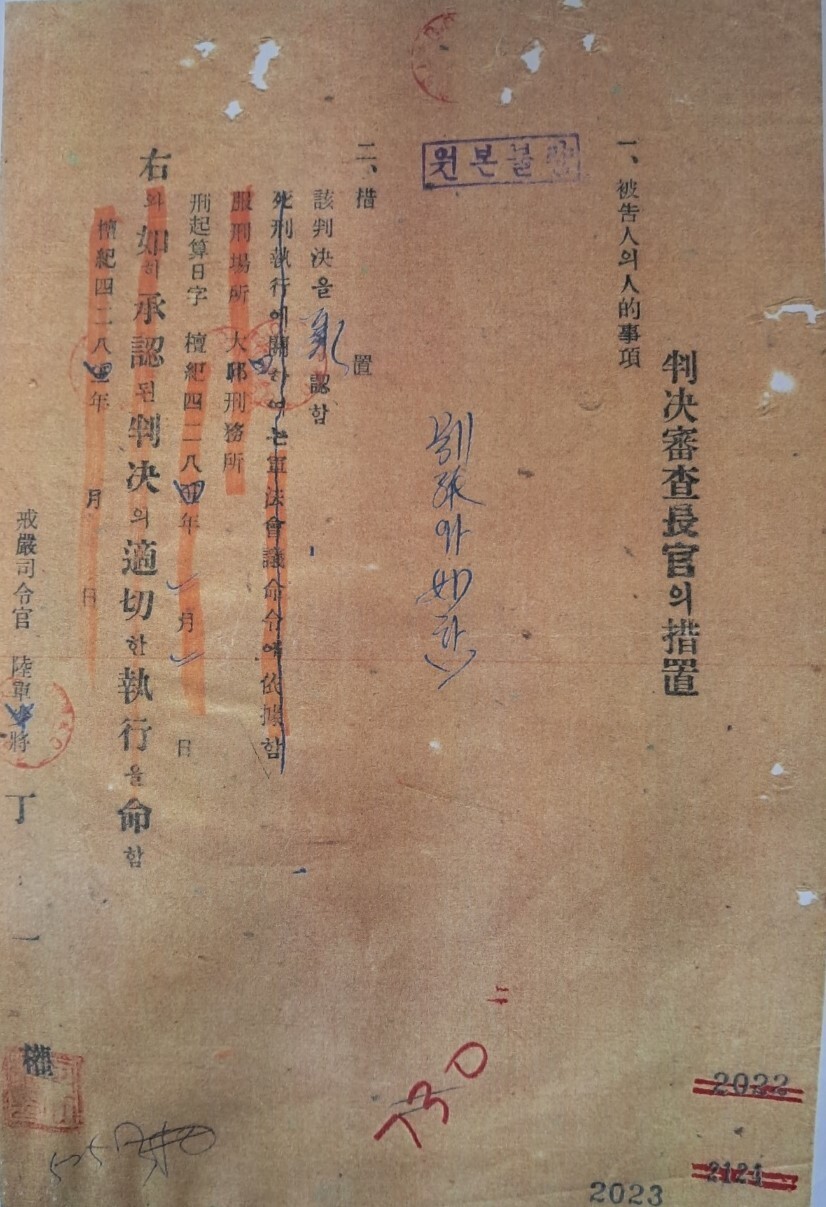 判决審査長官의措置
一、被告人의人的事項
원본불
別張과如함
二、措置
該判决을承認함
死刑執行에關하여는軍法會議命令에依據함
服刑場所 大邱刑務所
刑起算日字 檀紀四二八四年 月 日
右와如히承認된判决의適切한執行을命함
檀紀四二八四年 月 日
戒嚴司令官 陸軍 將 丁一權
730
2022
2121
2023